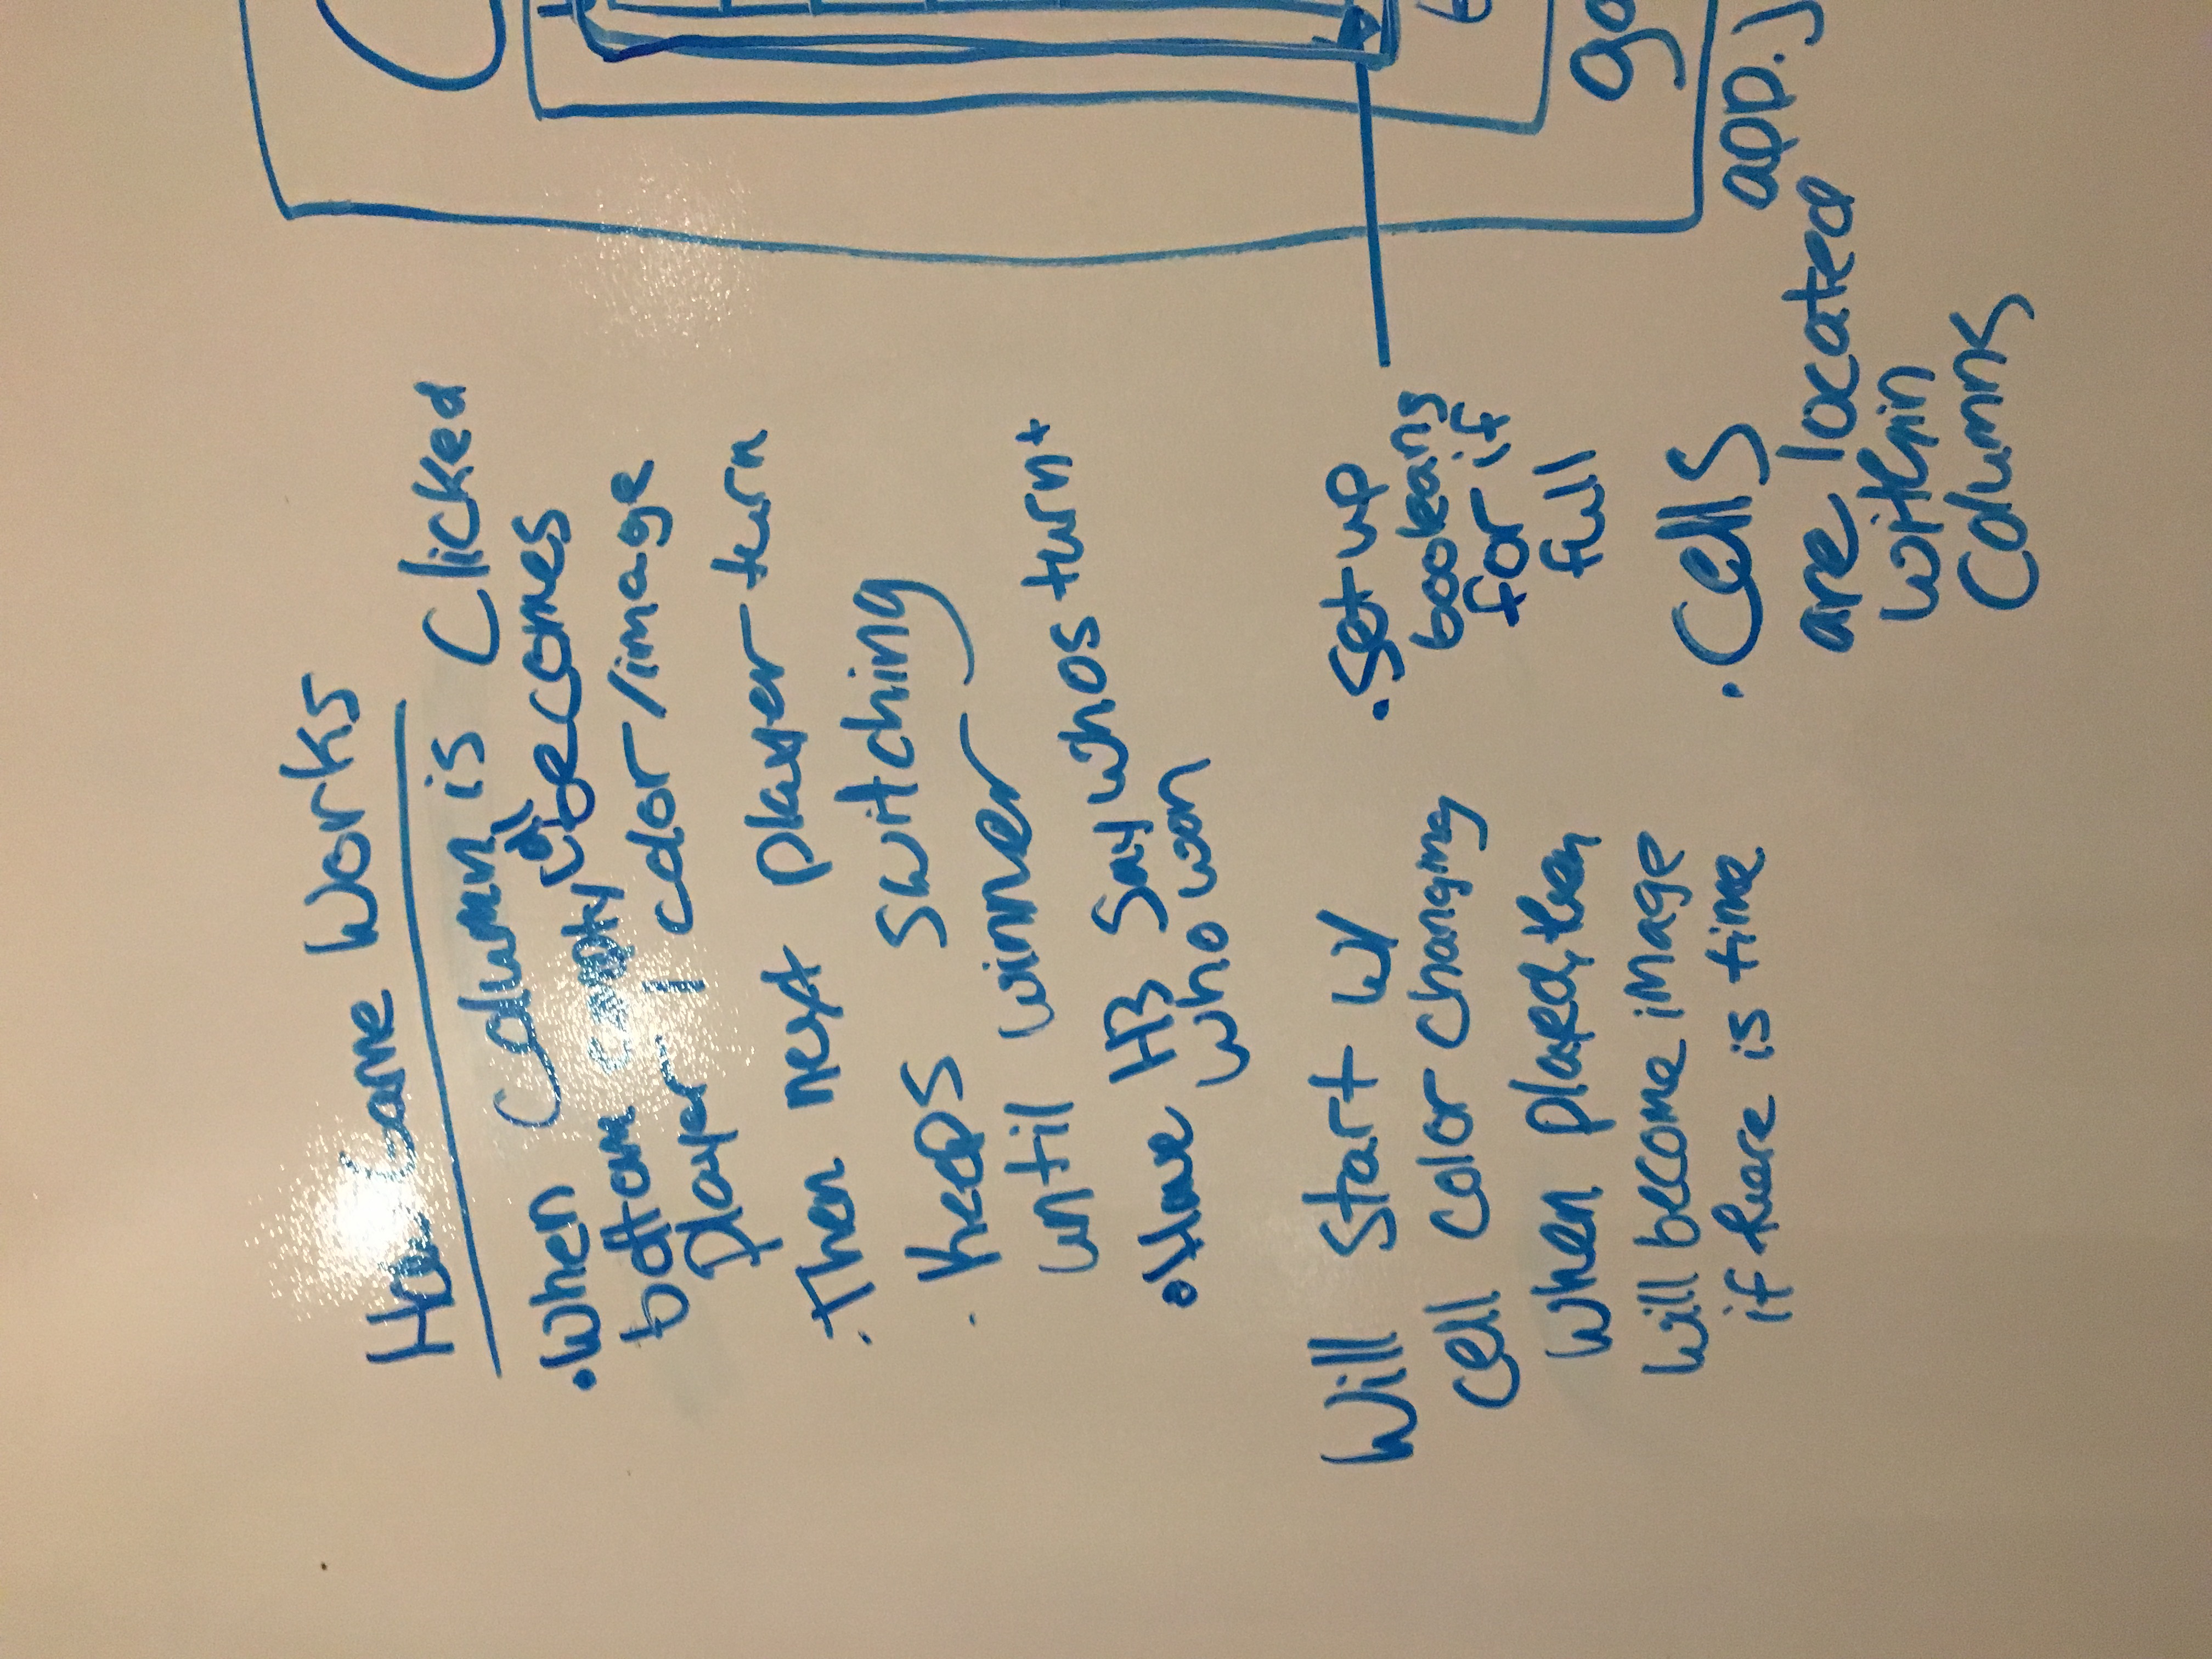 How Game Works
• When Column is Clicked
bottom empty cell becomes
player 1 color/image
· Then next player turn
· Keeps switching
until winner
• Have H3 Say whos turn +
who won
Will Start w/
cell color changing
when played, then
will become image
if there is time
• Set up
booleans
for if
full
• Cells
are located
within
Columns
app.j